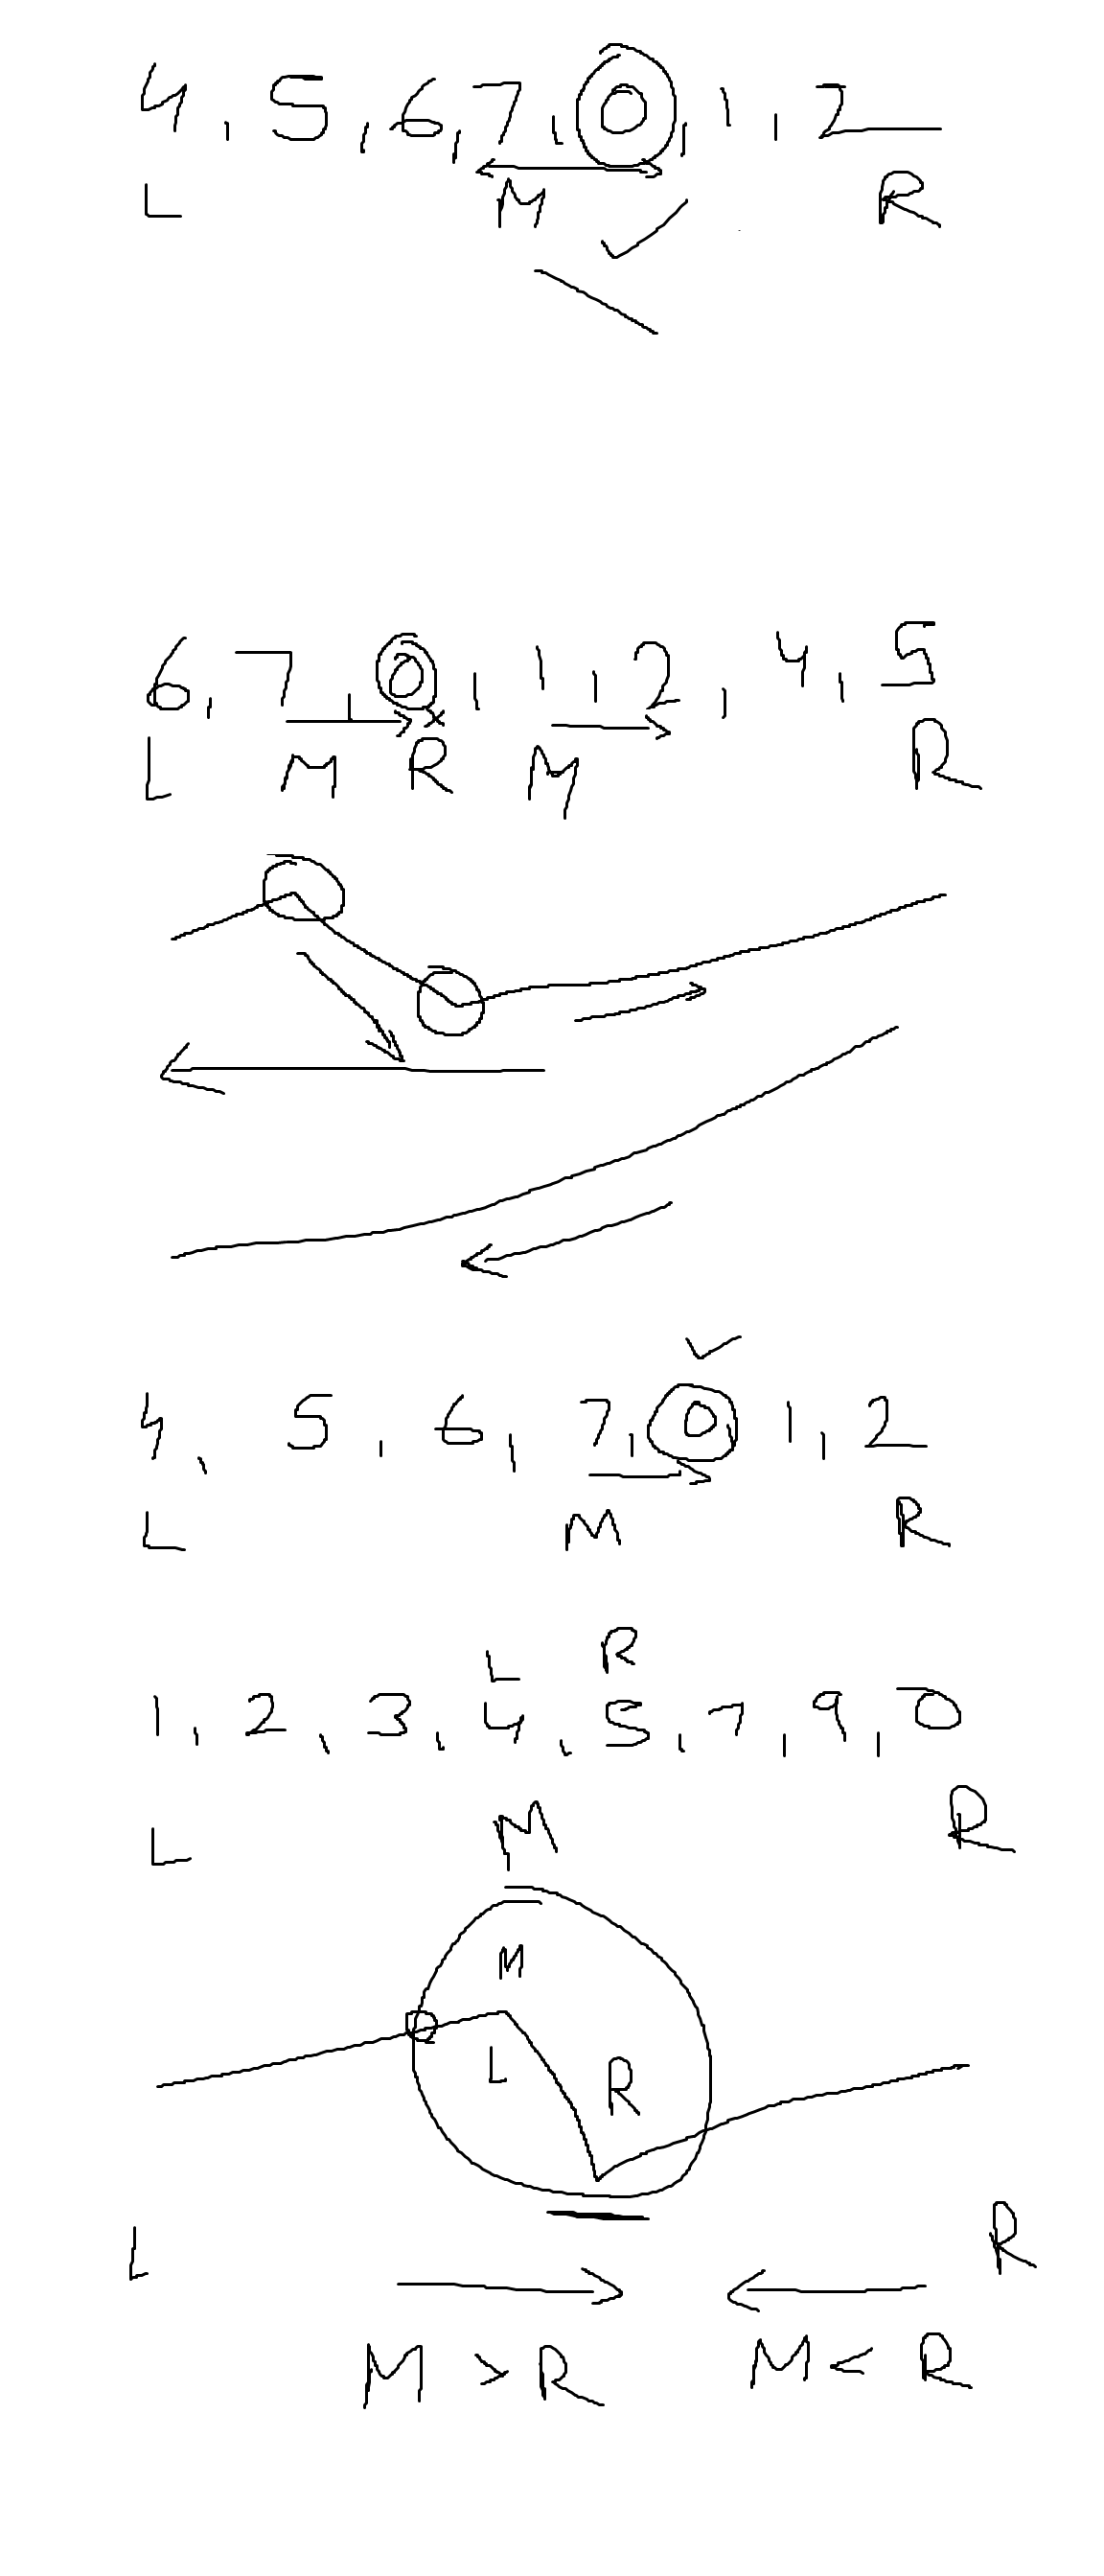 4, 5, 6, 7, 0, 1, 2
L M R
6, 7, 0, 1, 2, 4, 5
L M R M R
4, 5, 6, 7, 0 1, 2
L M R
L R
1, 2, 3, 4, 5, 7, 9, 0
L M R
M
L R
L R
M > R M < R